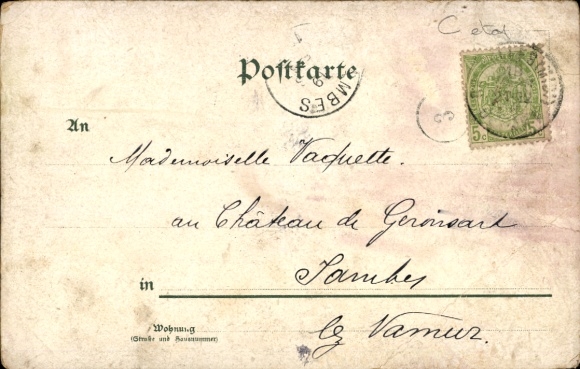 Postkarte
MBES
5c
An
Mademoiselle Vaquette.
au Château de Géronsart
in Jambes
Wohnung
(Straße und Hausnummer)
lez Namur.